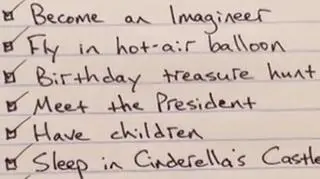 Become an Imagineer
Fly in hot-air balloon
Birthday treasure hunt
Meet the President
Have children
Sleep in Cinderella's Castle